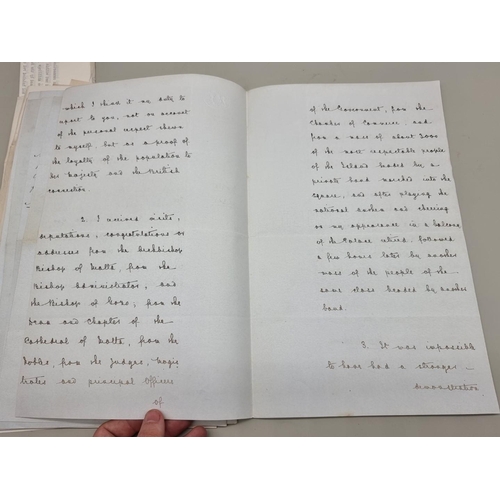 which I think it my duty to
report to you, not on account
of the personal respect shewn
to myself, but as a proof of
the loyalty of the population to
Her Majesty and the British
connection.
2. I received visits,
deputations, congratulations or
addresses from the Archbishop
Bishop of Malta, from the
Bishop Administrator, and
the Bishop of Gozo; from the
Dean and Chapter of the
Cathedral of Malta, from the
Nobles, from the Judges, Magis
trates and principal Officers
of
of the Government, from the
Chamber of Commerce; and
from a mass of about 3000
of the most respectable people
of the Island headed by a
private band marched into the
Square, and after playing the
national anthem and cheering
on my appearance in a balcony
of the Palace retired, followed
a few hours later by another
mass of the people of the
same class headed by another
band.
3. It was impossible
to have had a stronger
demonstration